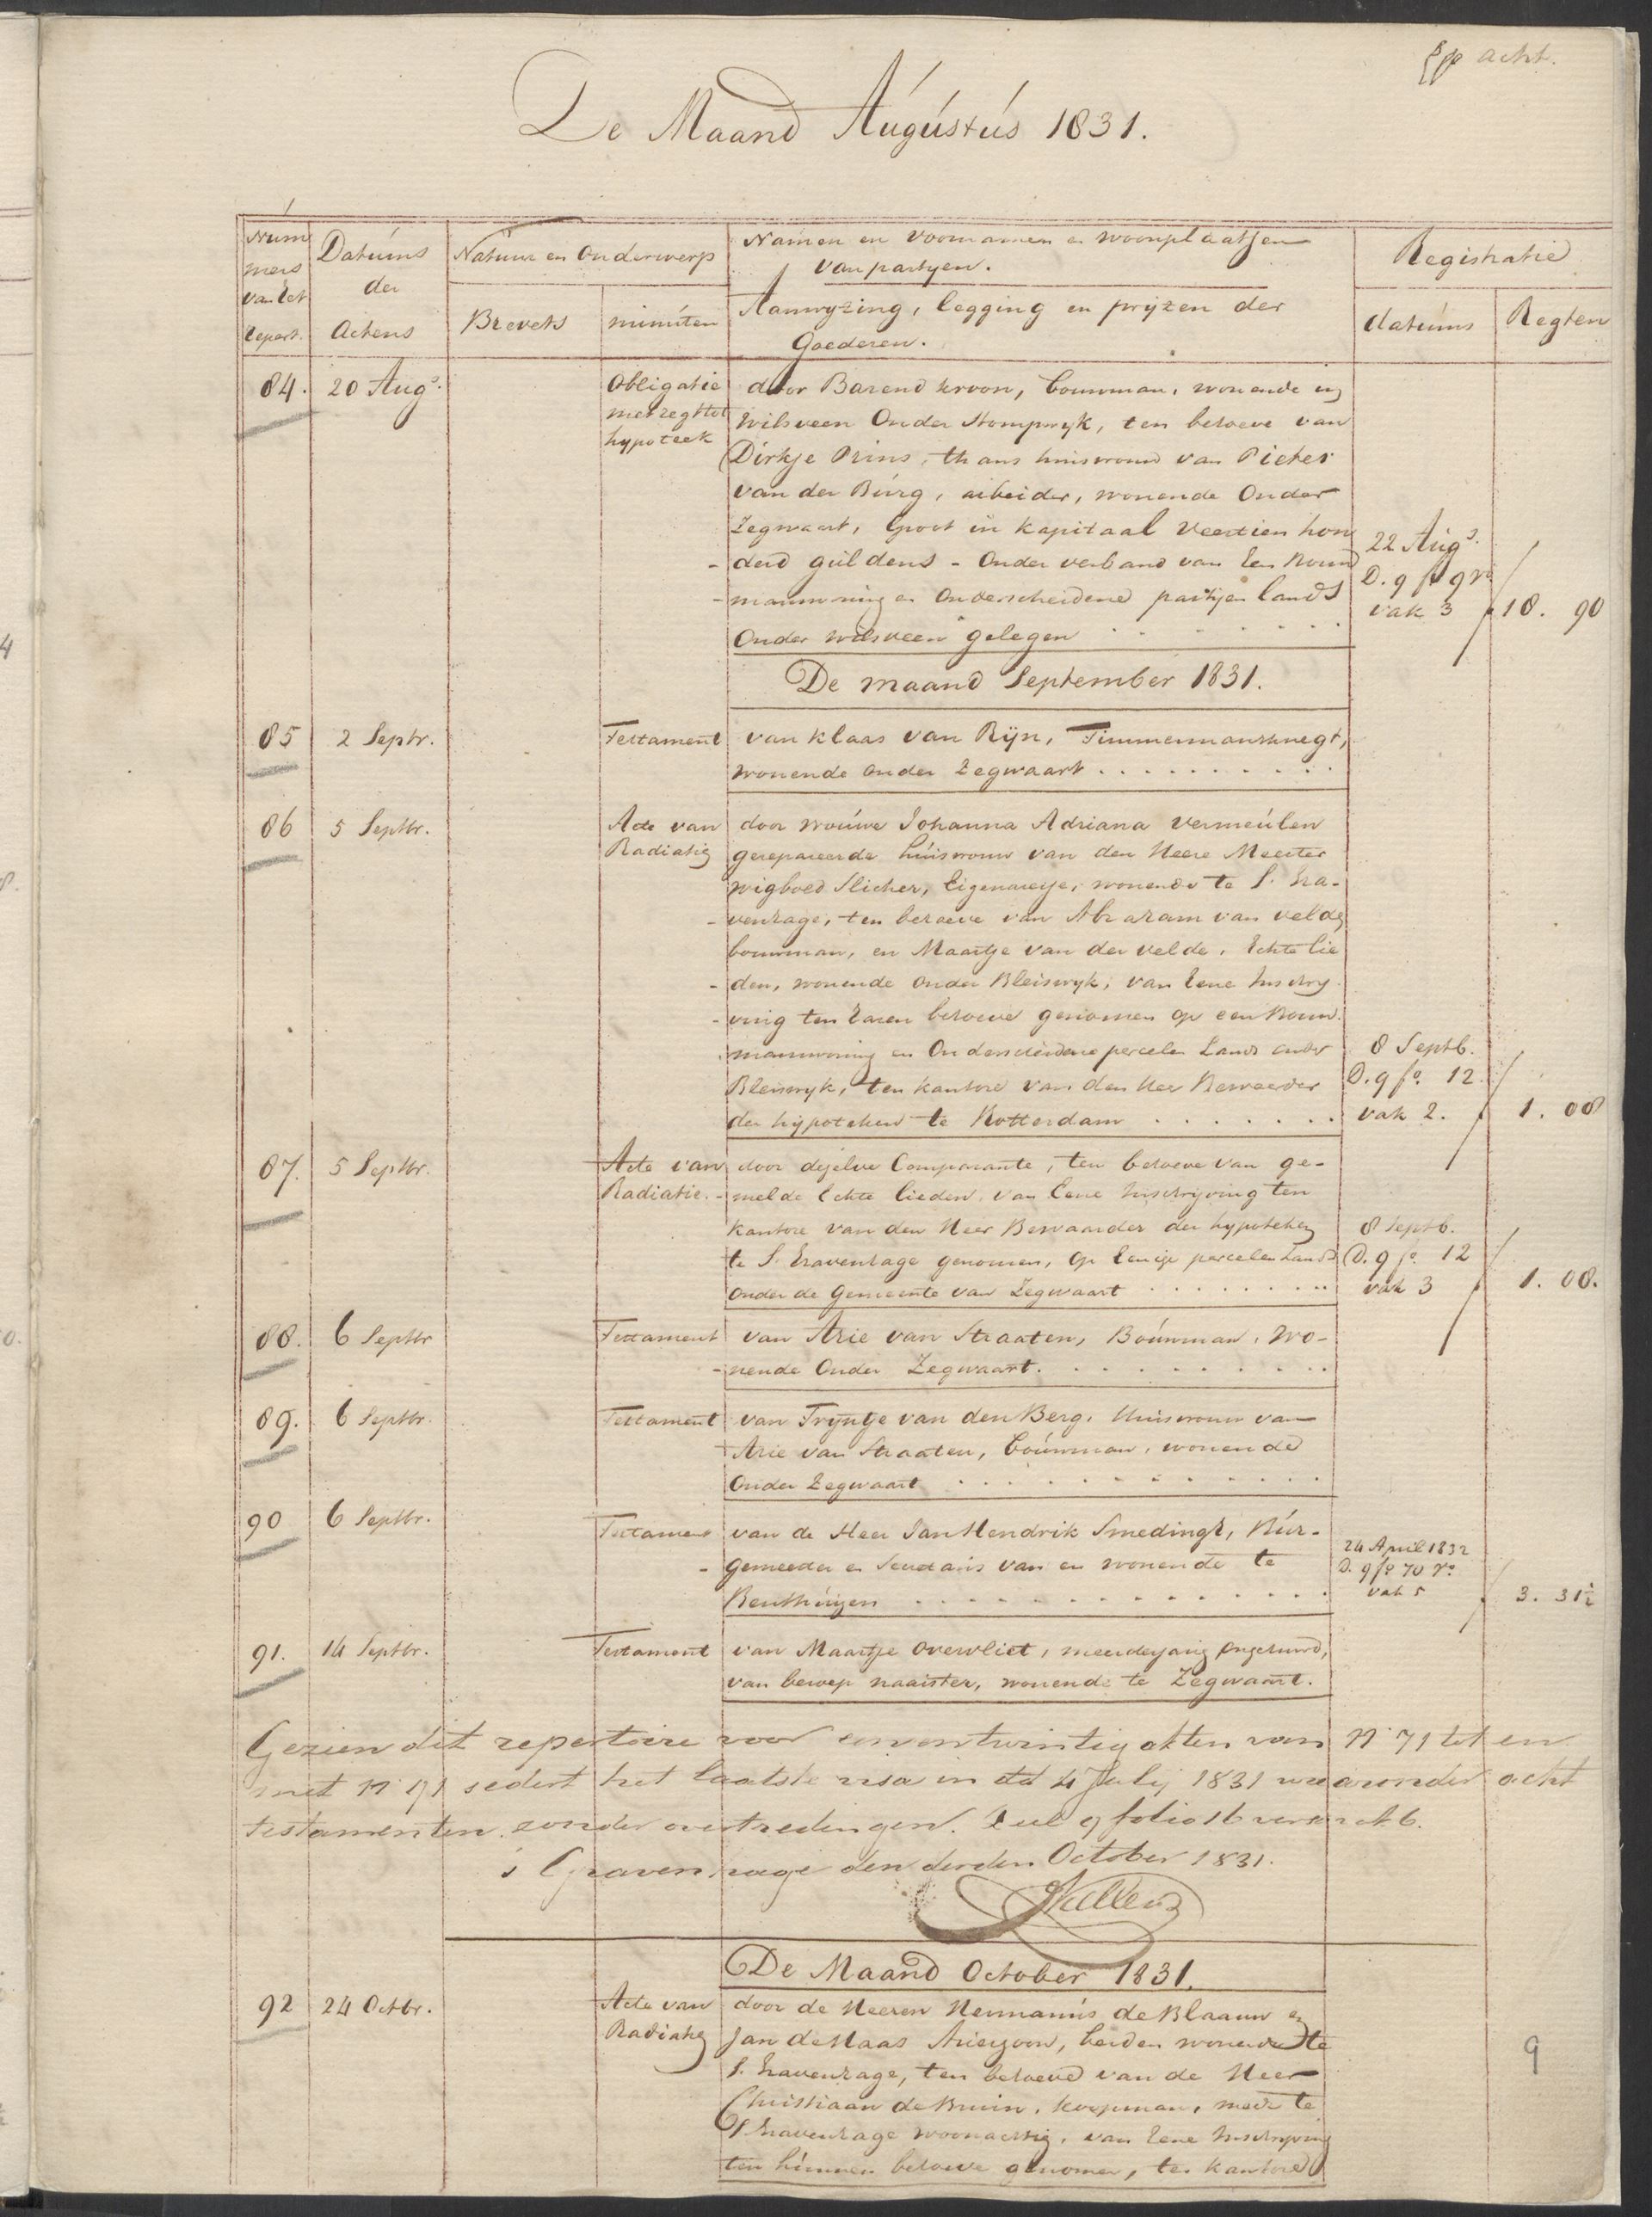 acht.
De Maand Augustus 1831.
Num
mers
van het
repert.
Datums
der
Actens
Natuur en Onderwerp
Brevets
minuten
Namen en voornamen en woonplaatsen
van partyen.
Aanwyzing, legging en prijzen der
Goederen.
Registratie
datums
Regten
84.
20 Augs.
Obligatie
met regt tot
hypoteek
door Barend Kroon, bouwman, wonende in
Wilsveen Onder Stompwyk, ten behoeve van
Dirkje Prins, thans huisvrouw van Pieter
van der Burg, arbeider, wonende Onder
Zegwaart, Groot in kapitaal veertien hon
- derd guldens - Onder verband van Een Bouw
- manwoning en Onderscheidene partijen lands
Onder Wilsveen gelegen
22 Augs.
D. 9 fo 9 vo
vak 3
10. 90
De maand September 1831.
85
2 Septr.
Testament
van Klaas van Rijn, Timmermansknegt,
wonende onder Zegwaart
86
5 Septbr.
Acte van
Radiatie
door vrouwe Johanna Adriana Vermeulen
gesepareerde huisvrouw van den Heere Meester
Wigbold Slicher, Eigenaresse, wonende te S. Gra-
- venhage, ten behoeve van Abraham van Velde
bouwman, en Maartje van der Velde, Echte lie
- den, wonende onder Bleiswyk, van Eene Inschry
- ving ten haren behoeve genomen op een Bouw
- manwoning en Onderscheidene percelen Lands onder
Bleiswyk, ten kantore van den Heer Bewaarder
der hypoteken te Rotterdam
8 Septb.
D. 9 fo. 12
vak 2.
1. 08
87.
5 Septbr.
Acte van
Radiatie. -
door dezelve Comparante, ten behoeve van ge-
melde Echte lieden, van Eene Inschrijving ten
kantore van den Heer Bewaarder der hypoteken
te S. Gravenhage genomen, op Eenige percelen Lands
onder de Gemeente van Zegwaart
8 Septb.
D. 9 fo. 12
vak 3
1. 08.
88.
6 Septbr
Testament
van Arie van Straaten, Bouwman, wo-
- nende Onder Zegwaart.
89.
6 Septbr.
Testament
van Tryntje van den Berg, Huisvrouw van
Arie van Straaten, bouwman, wonende
Onder Zegwaart
90
6 Septbr.
Testament
van de Heer Jan Hendrik Smedingh, Bur-
- gemeester en Secretaris van en wonende te
Benthuizen
24 April 1832
D. 9 fo 70 vo.
vak 5
3. 31½
91.
14 Septbr.
Testament
van Maartje Overvliet, meerderjarig Ongehuwd,
van beroep naaister, wonende te Zegwaart.
Gezien dit repertoire voor eenentwintig akten van No 71 tot en
met No 91 sedert het laatste visa in dd 4 July 1831 waaronder acht
testamenten. zonder overtredingen. Deel 9 folio 16 verso vak 6.
's Gravenhage den derden October 1831.
De Maand October 1831.
92
24 Octbr.
Acte van
Radiatie
door de Heeren Hermanus de Blaauw en
Jan de Haas Arieszoon, beiden wonende te
S. Gravenhage, ten behoeve van de Heer
Christiaan de Bruin, koopman, mede te
S Gravenhage woonachtig, van Eene Inschryving
ten hunnen behoeve genomen, ten kantore
9